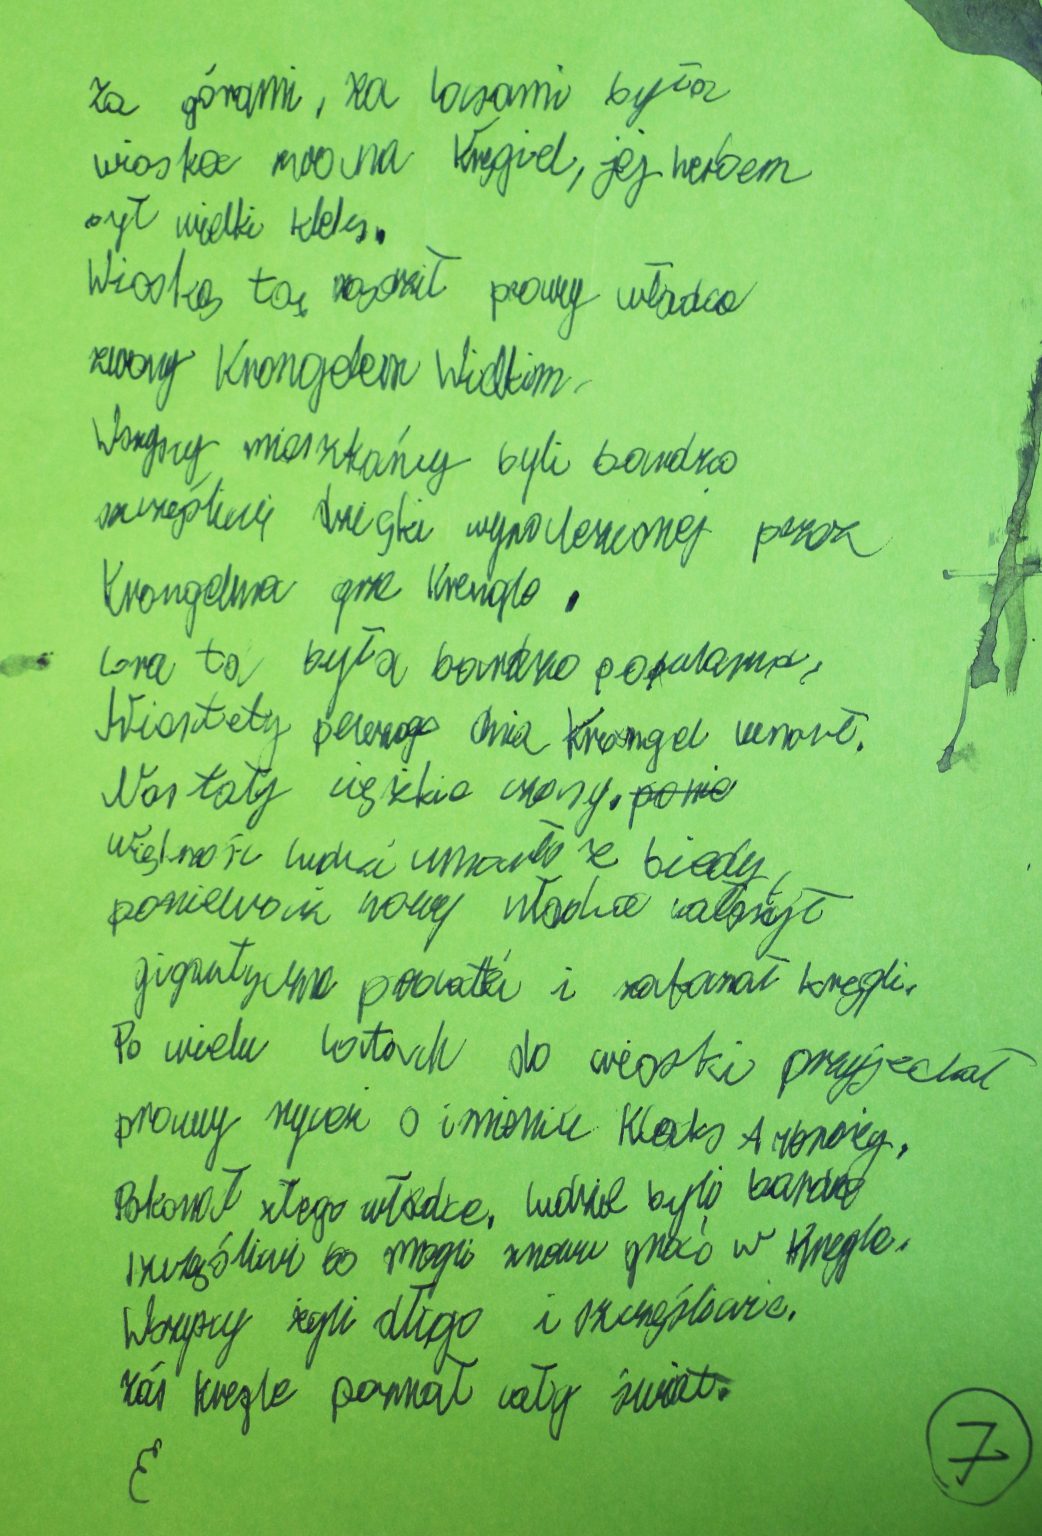 Za górami, za lasami była
wioska zwana Kręgiel, jej herbem
był wielki kleks.
Wioską tą rządził prawy władca
zwany Krongelem Wielkim.
Wszyscy mieszkańcy byli bardzo
szczęśliwi dzięki wynalezionej przez
Krongelma grze Krengle.
Gra ta była bardzo popularna,
Niestety pewnego dnia Krongel umarł.
Nastały ciężkie czasy.
Większość ludzi umarło z biedy,
ponieważ nowy władca nałożył
gigantyczne podatki i zakazał kręgli.
Po wielu latach do wioski przyjechał
prawy rycerz o imieniu Kleks
Pokonał złego władcę. Ludzie byli bardzo
szczęśliwi bo mogli znowu grać w Kręgle.
Wszyscy żyli długo i szczęśliwie.
Zaś kręgle poznał cały świat.
E
7